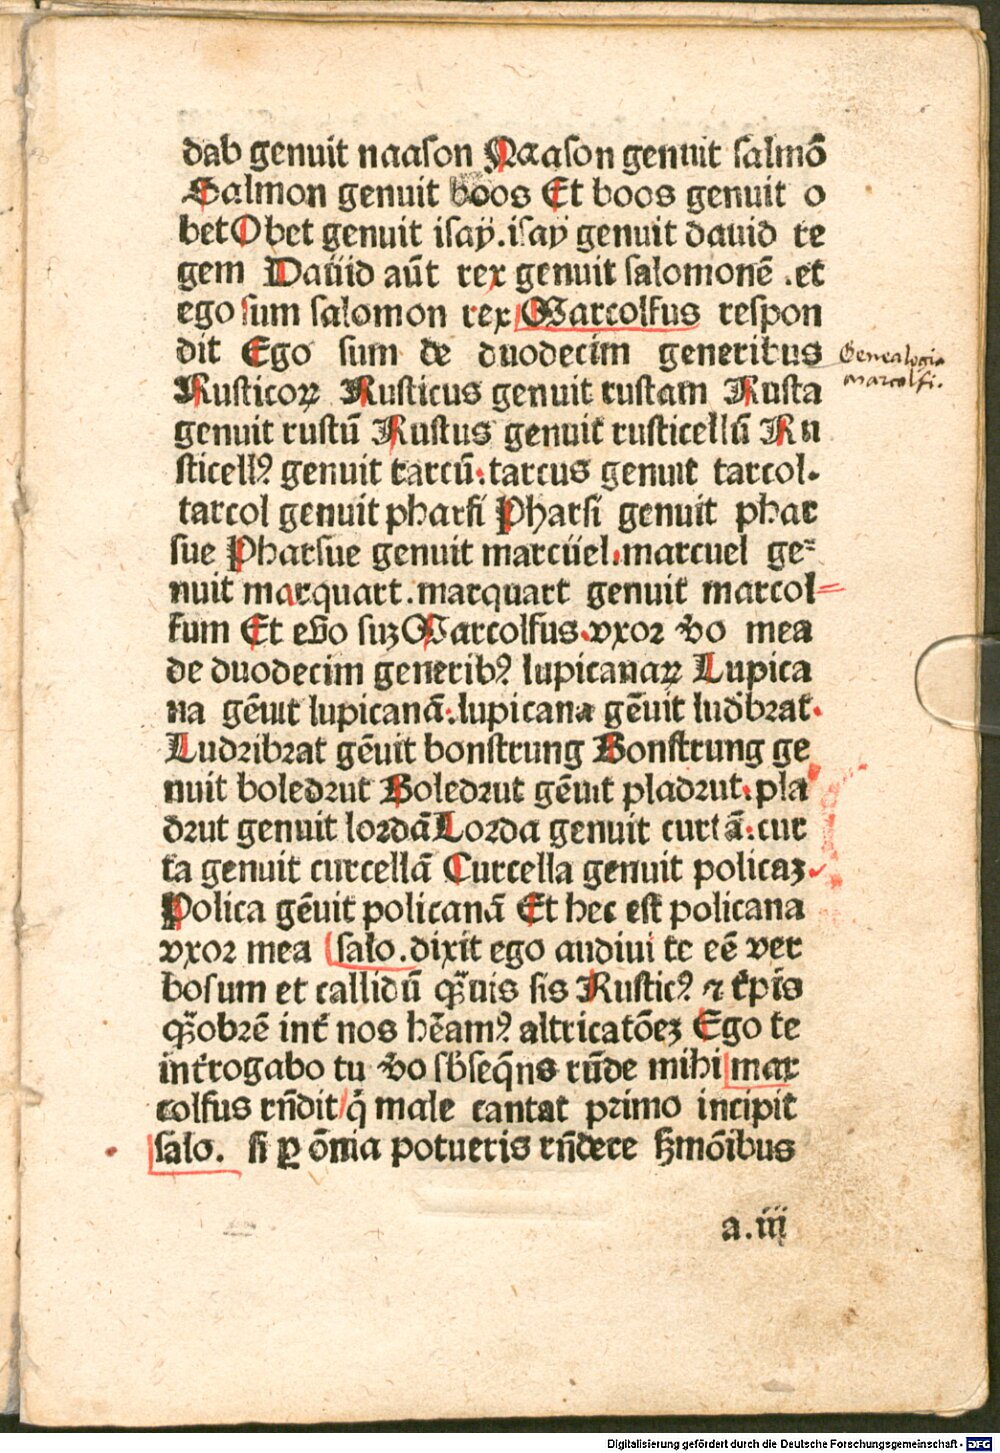 dab genuit naason Naason genuit salmō
Salmon genuit boos Et boos genuit o
bet Obet genuit isaÿ. isaÿ genuit dauid re
gem Dauid aūt rex genuit salomonē .et
ego sum salomon rex Marcolfus respon
dit Ego sum de duodecim generibus
Genealogia
marcolfi.
Rusticoꝝ Rusticus genuit rustam Rusta
genuit rustū Rustus genuit rusticellū Ru
sticellꝰ genuit tarcū. tarcus genuit tarcol.
tarcol genuit pharsi Pharsi genuit phar
sue Pharsue genuit marcuel. marcuel ge⸗
nuit marquart .marquart genuit marcol⸗
fum Et eḡo suꝫ Marcolfus. vxor v̄o mea
de duodecim generibꝰ lupicanaꝝ Lupica
na gēuit lupicanā. lupicana gēuit ludibrat.
Ludribrat gēuit bonstrung Bonstrung ge
nuit boledrut Boledrut gēuit pladrut. pla
drut genuit lordā Lorda genuit curtā. cur
ta genuit curcellā Curcella genuit policaꝫ
Polica gēuit policanā Et hec est policana
vxor mea salo. dixit ego audiui te eē ver
bosum et callidū qᷓuis sis Rusticꝰ ⁊ t̄pīs
qᷓobrē int̄ nos hēamꝰ altricatōeꝫ Ego te
int̄rogabo tu v̄o sb̄seq̄ns rn̄de mihi mar
colfus rn̄dit q̄ male cantat primo incipit
salo. si ꝑ ōnia potueris rn̄dere ẜmōibus
a.iii
Digitalisierung gefördert durch die Deutsche Forschungsgemeinschaft - DFG